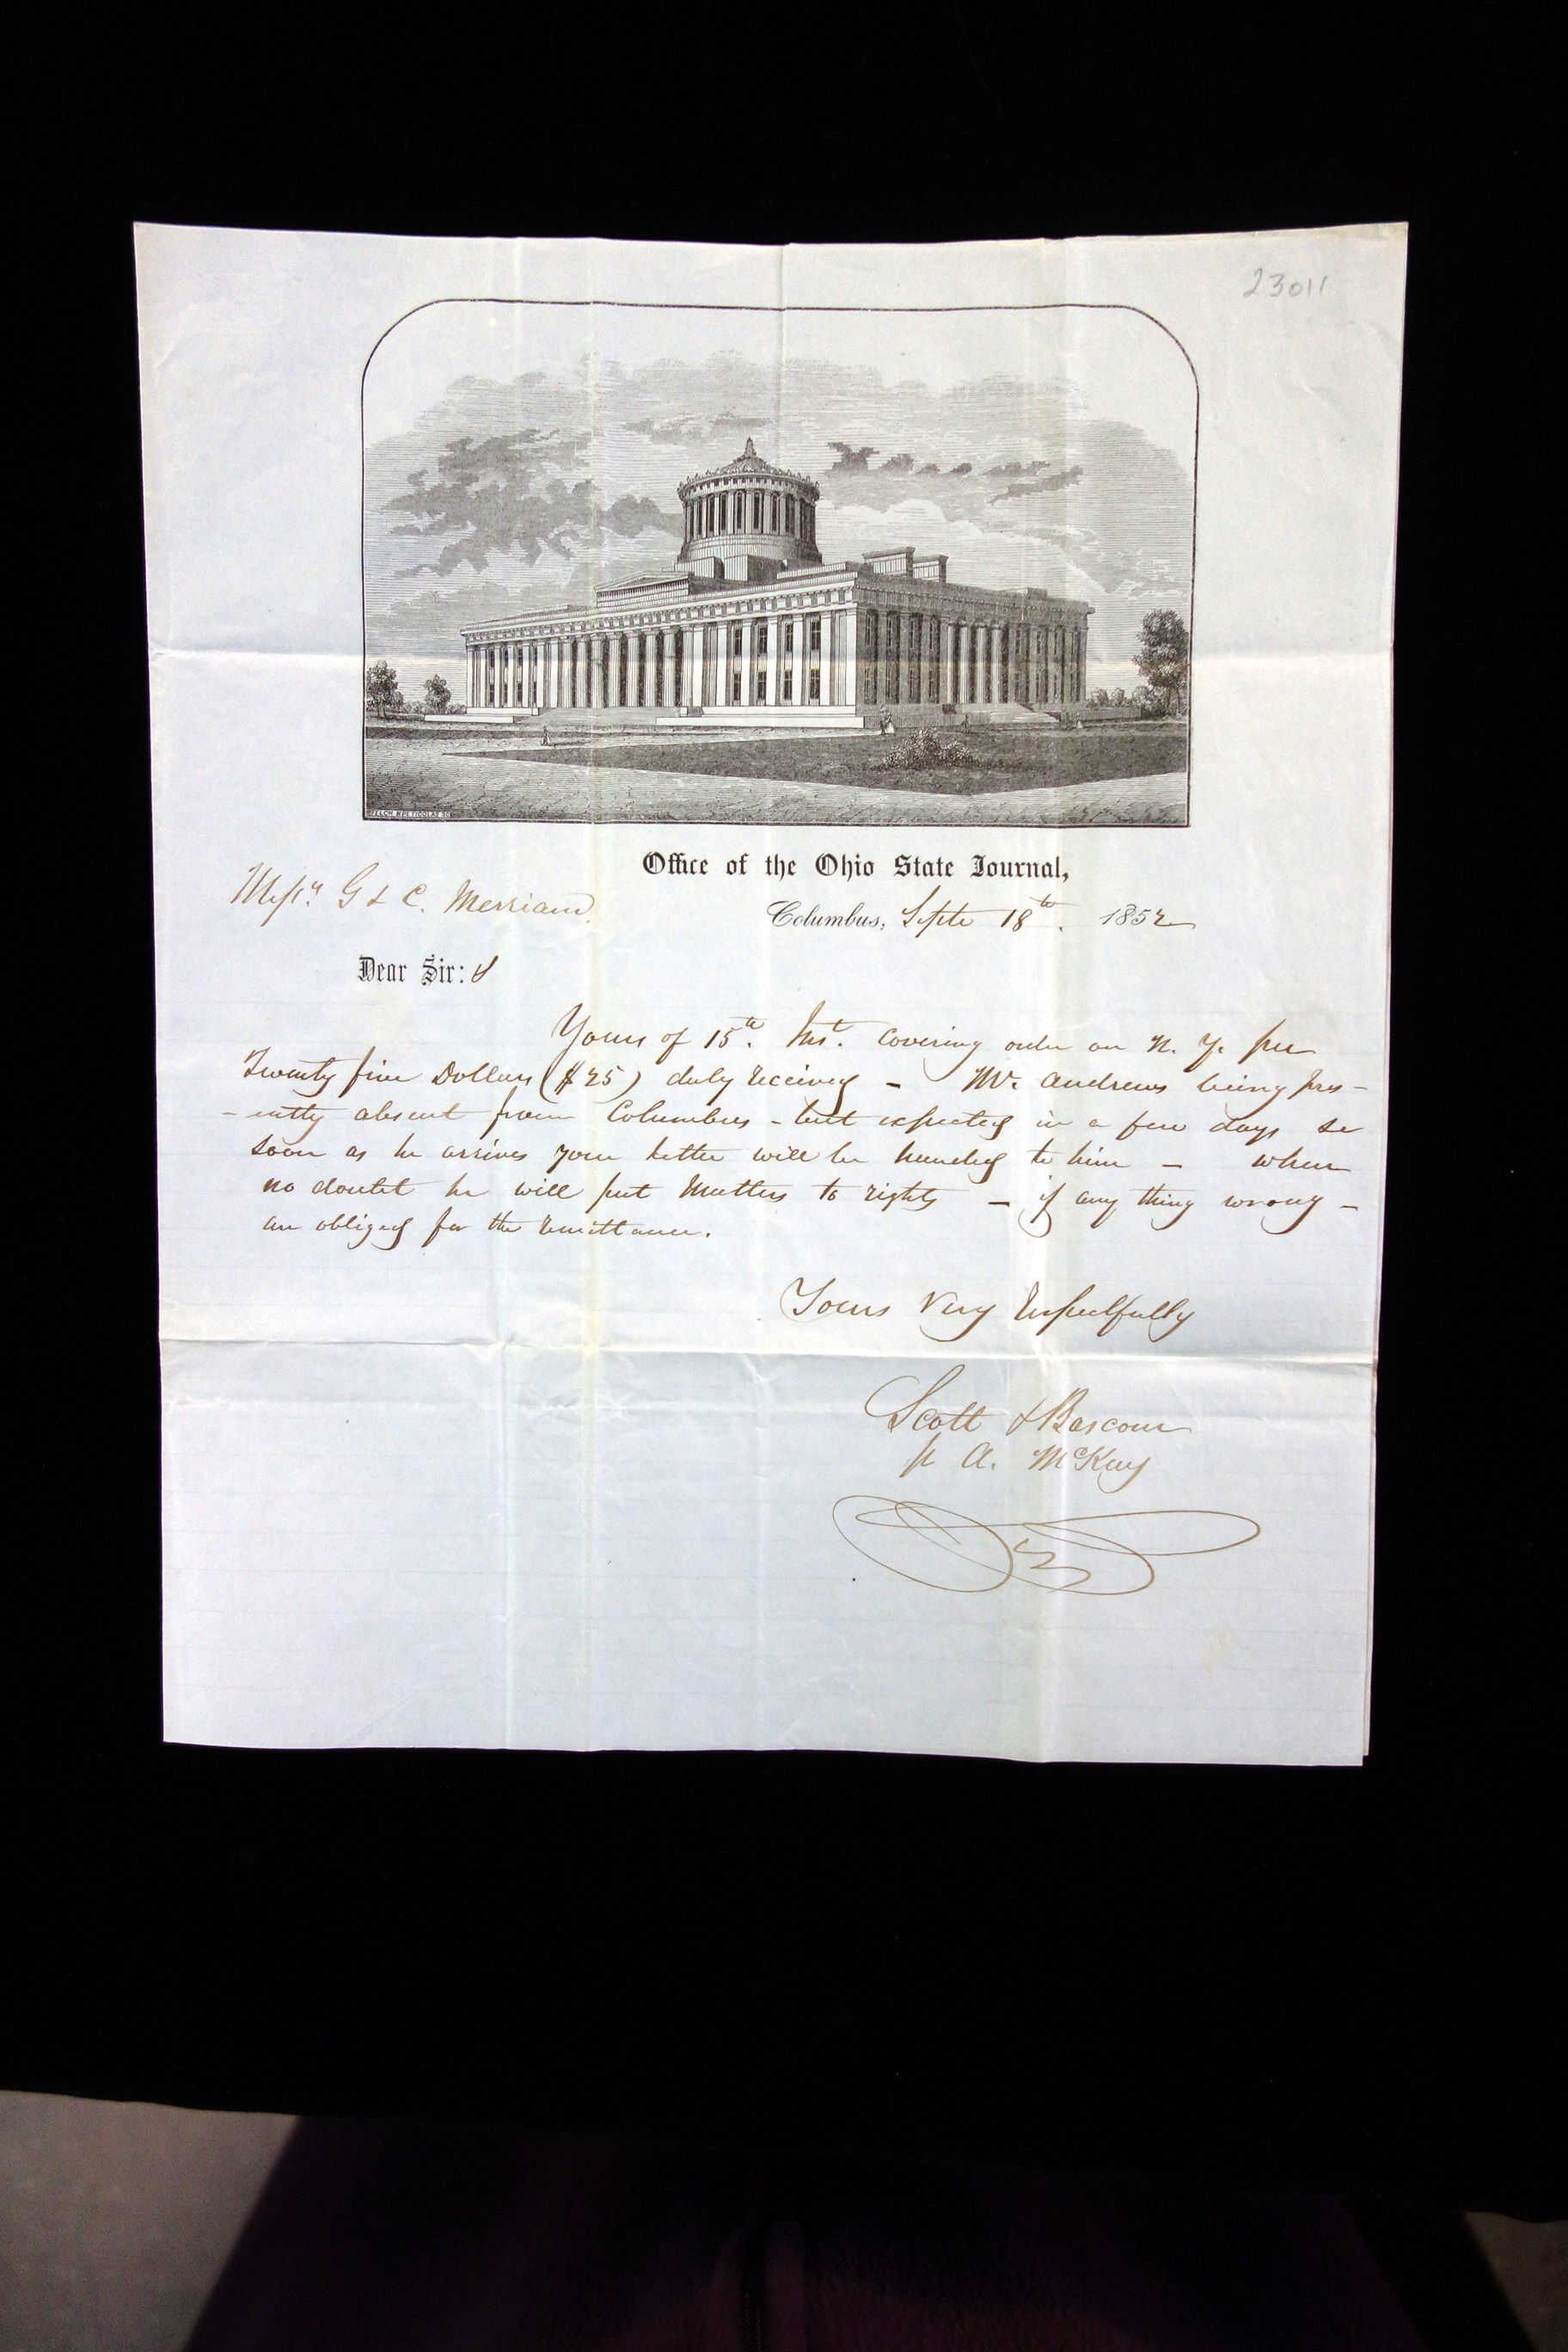 23011
FELCH & PETICOLAS SC
Office of the Ohio State Journal,
Messrs G & C. Merriam,
Columbus, Septe 18th. 1852
Dear Sir:s
Yours of 15th. Inst. Covering order on N. Y. for
Twenty five Dollars ($25) duly received – Mr. Andrews being pres–
–ently absent from Columbus – but expected in a few days so
soon as he arrives your letter will be handed to him – when
no doubt he will put Matters to rights – if any thing wrong –
am obliged for the remittance.
Yours Very respectfully
Scott & Bascom
p A. McKay